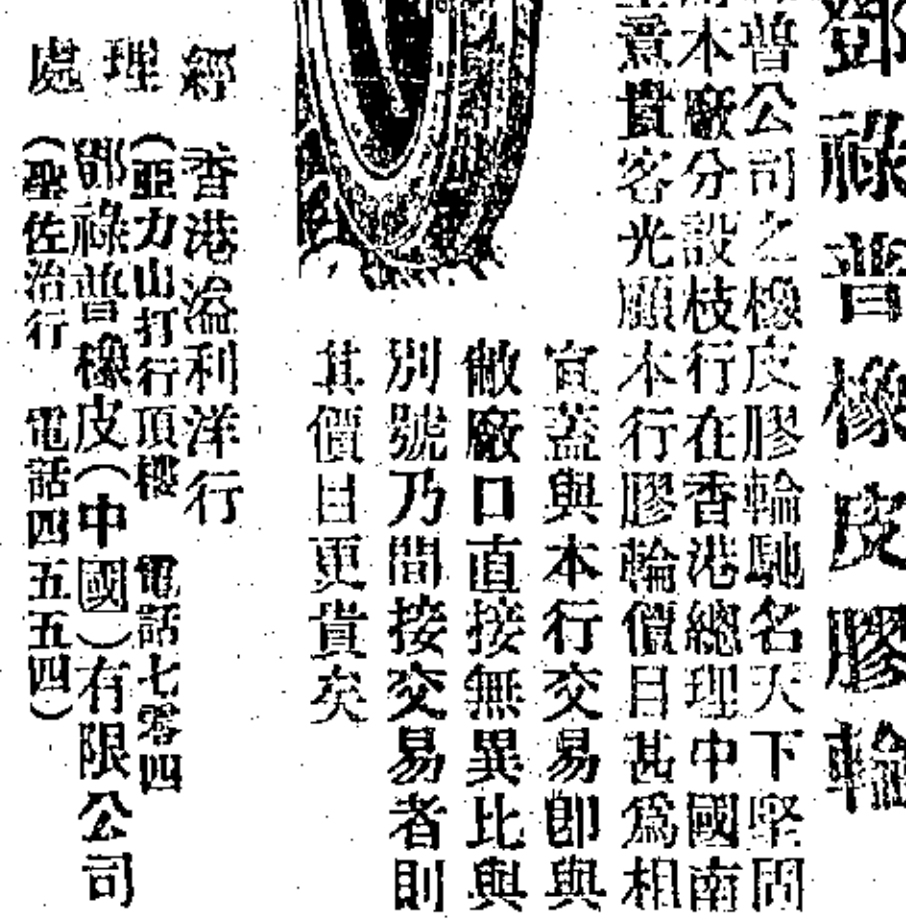 鄧祿普橡皮膠輪
普公司之橡皮膠輪馳名天下堅問
本廠分設枝行在香港總理中國南
意貴客光顧本行膠輪價目甚爲相
宜蓋與本行交易即與
敝廠口直接無異比與
別號乃間接交易者則
其價目更貴矣
經理處
香港溢利洋行
(亞力山打行頂樓 電話七零四
鄧祿普橡皮(中國)有限公司
(聖佐治行 電話四五五四)